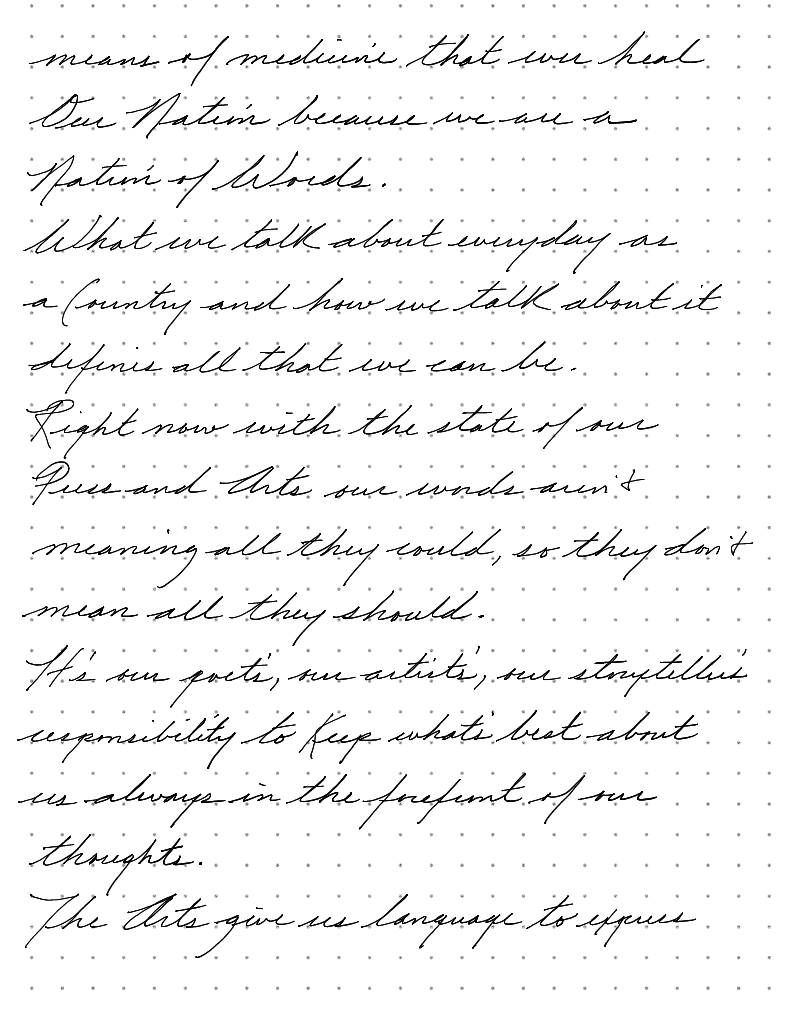 means of medicine that ever heal
Our Nation because we are a
Nation of Words.
What we talk about everyday as
a Country and how we talk about it
defines all that we can be.
Right now with the state of our
Press and Arts our words aren't
meaning all they could, so they don't
mean all they should.
It's our poet's, our artist's, our storyteller's
responsibility to Keep what's best about
us always in the forefront of our
thoughts.
The Arts give us language to express